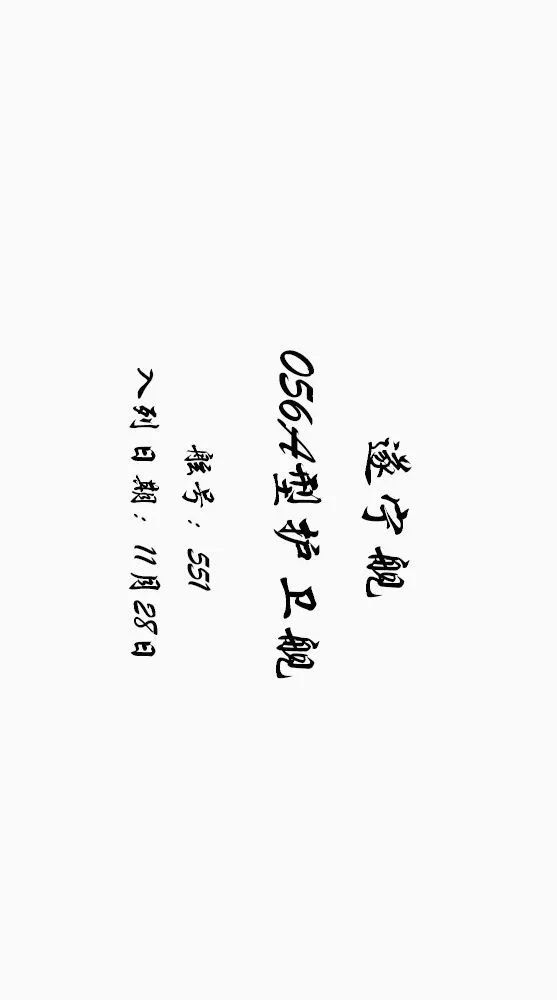 遂宁舰
056A型护卫舰
舷号：551
入列日期：11月28日